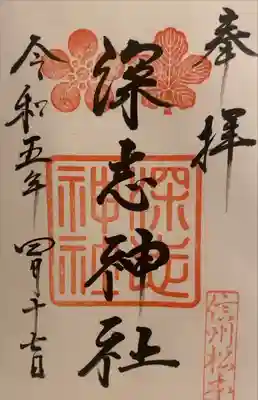 奉拝
深志神社
深志神社
信州松本
令和五年 四月十七日